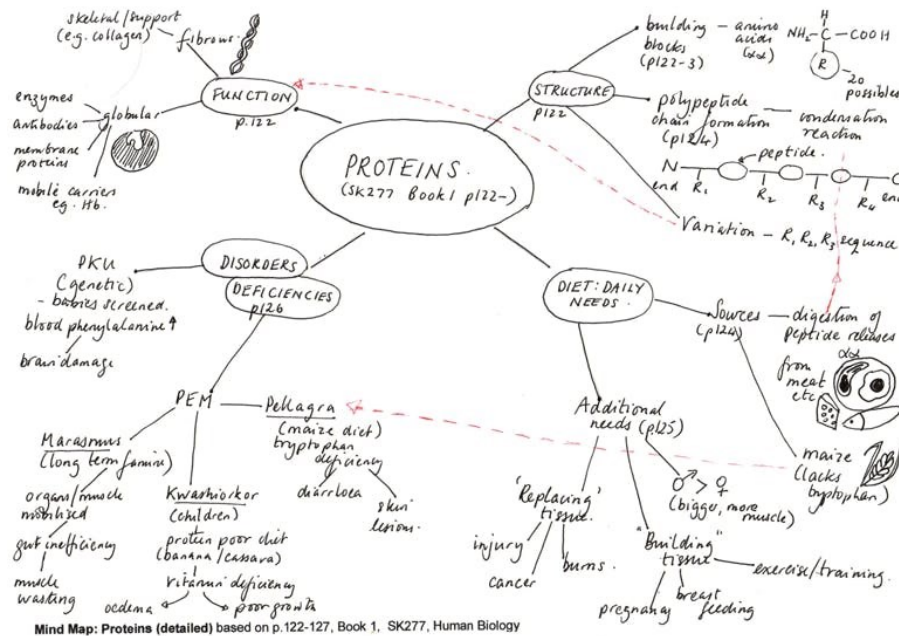 PROTEINS.
(SK277 Book 1 p122-)
FUNCTION
p.122
fibrous.
skeletal/support
(e.g. collagen)
globular
enzymes
antibodies
membrane
proteins
mobile carriers
eg. Hb.
STRUCTURE
p122
building
blocks
(p122-3)
amino
acids
(αα)
H
NH2 - C - COOH
R
20
possibles
polypeptide
chain formation
(p124)
condensation
reaction
peptide.
N
end
R1
R2
R3
R4
end
Variation - R1, R2, R3 sequence
DISORDERS
DEFICIENCIES
p126
PKU
(genetic)
- babies screened.
blood phenylalanine ↑
brain damage
PEM
Marasmus
(long term famine)
organs/muscle
mobilised
gut inefficiency
muscle
wasting
Kwashiorkor
(children)
protein poor diet
(banana/cassava)
vitamin deficiency
oedema
poor growth
Pellagra
(maize diet)
tryptophan
deficiency
diarrhoea
skin
lesions.
DIET: DAILY
NEEDS.
Sources
(p124)
digestion of
peptide releases
αα
from
meat
etc
maize
(lacks
tryptophan)
Additional
needs (p125)
♂ > ♀
(bigger, more
muscle)
'Replacing'
tissue.
injury
cancer
burns.
"Building"
tissue
pregnancy
breast
feeding
exercise/training.
Mind Map: Proteins (detailed) based on p.122-127, Book 1, SK277, Human Biology